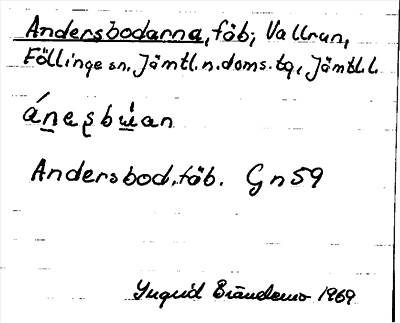 Andersbodarna, fäb; Vallrun,
Föllinge sn, Jämtl. n. doms. tg, Jämtl. l.
ánaʂbu̇an
Andersbod. fäb. Gn 59
Ingrid Brändemo 1969